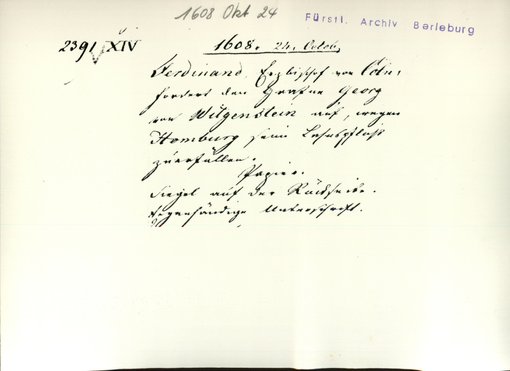 1608 Okt 24
Fürstl. Archiv Berleburg
2391 XIV
1608. 24. Octob.
Ferdinand, Erzbischof von Cöln,
fordert den Grafen Georg
von Witgenstein auf, wegen
Homburg seine Lehnspflicht
zu erfüllen.
Papier.
Siegel auf der Rückseite.
Eigenhändige Unterschrift.